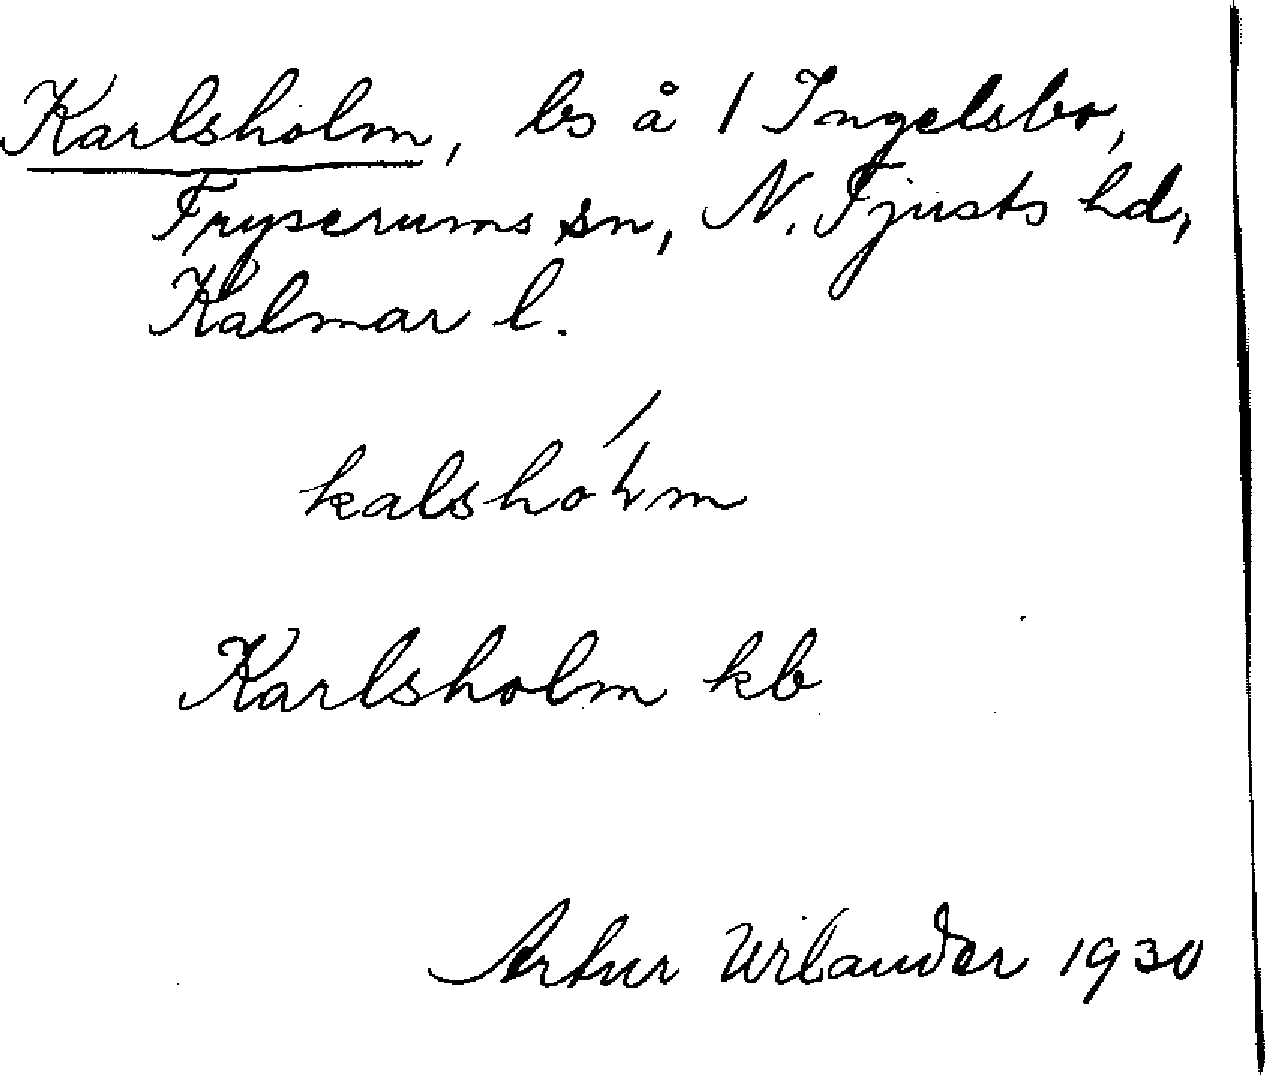 Karlsholm, ls å 1 Ingelsbo,
Fryserums sn, N. Tjusts hd,
Kalmar l.
kalshoʹɫm
Karlsholm kb
Artur Wilander 1930